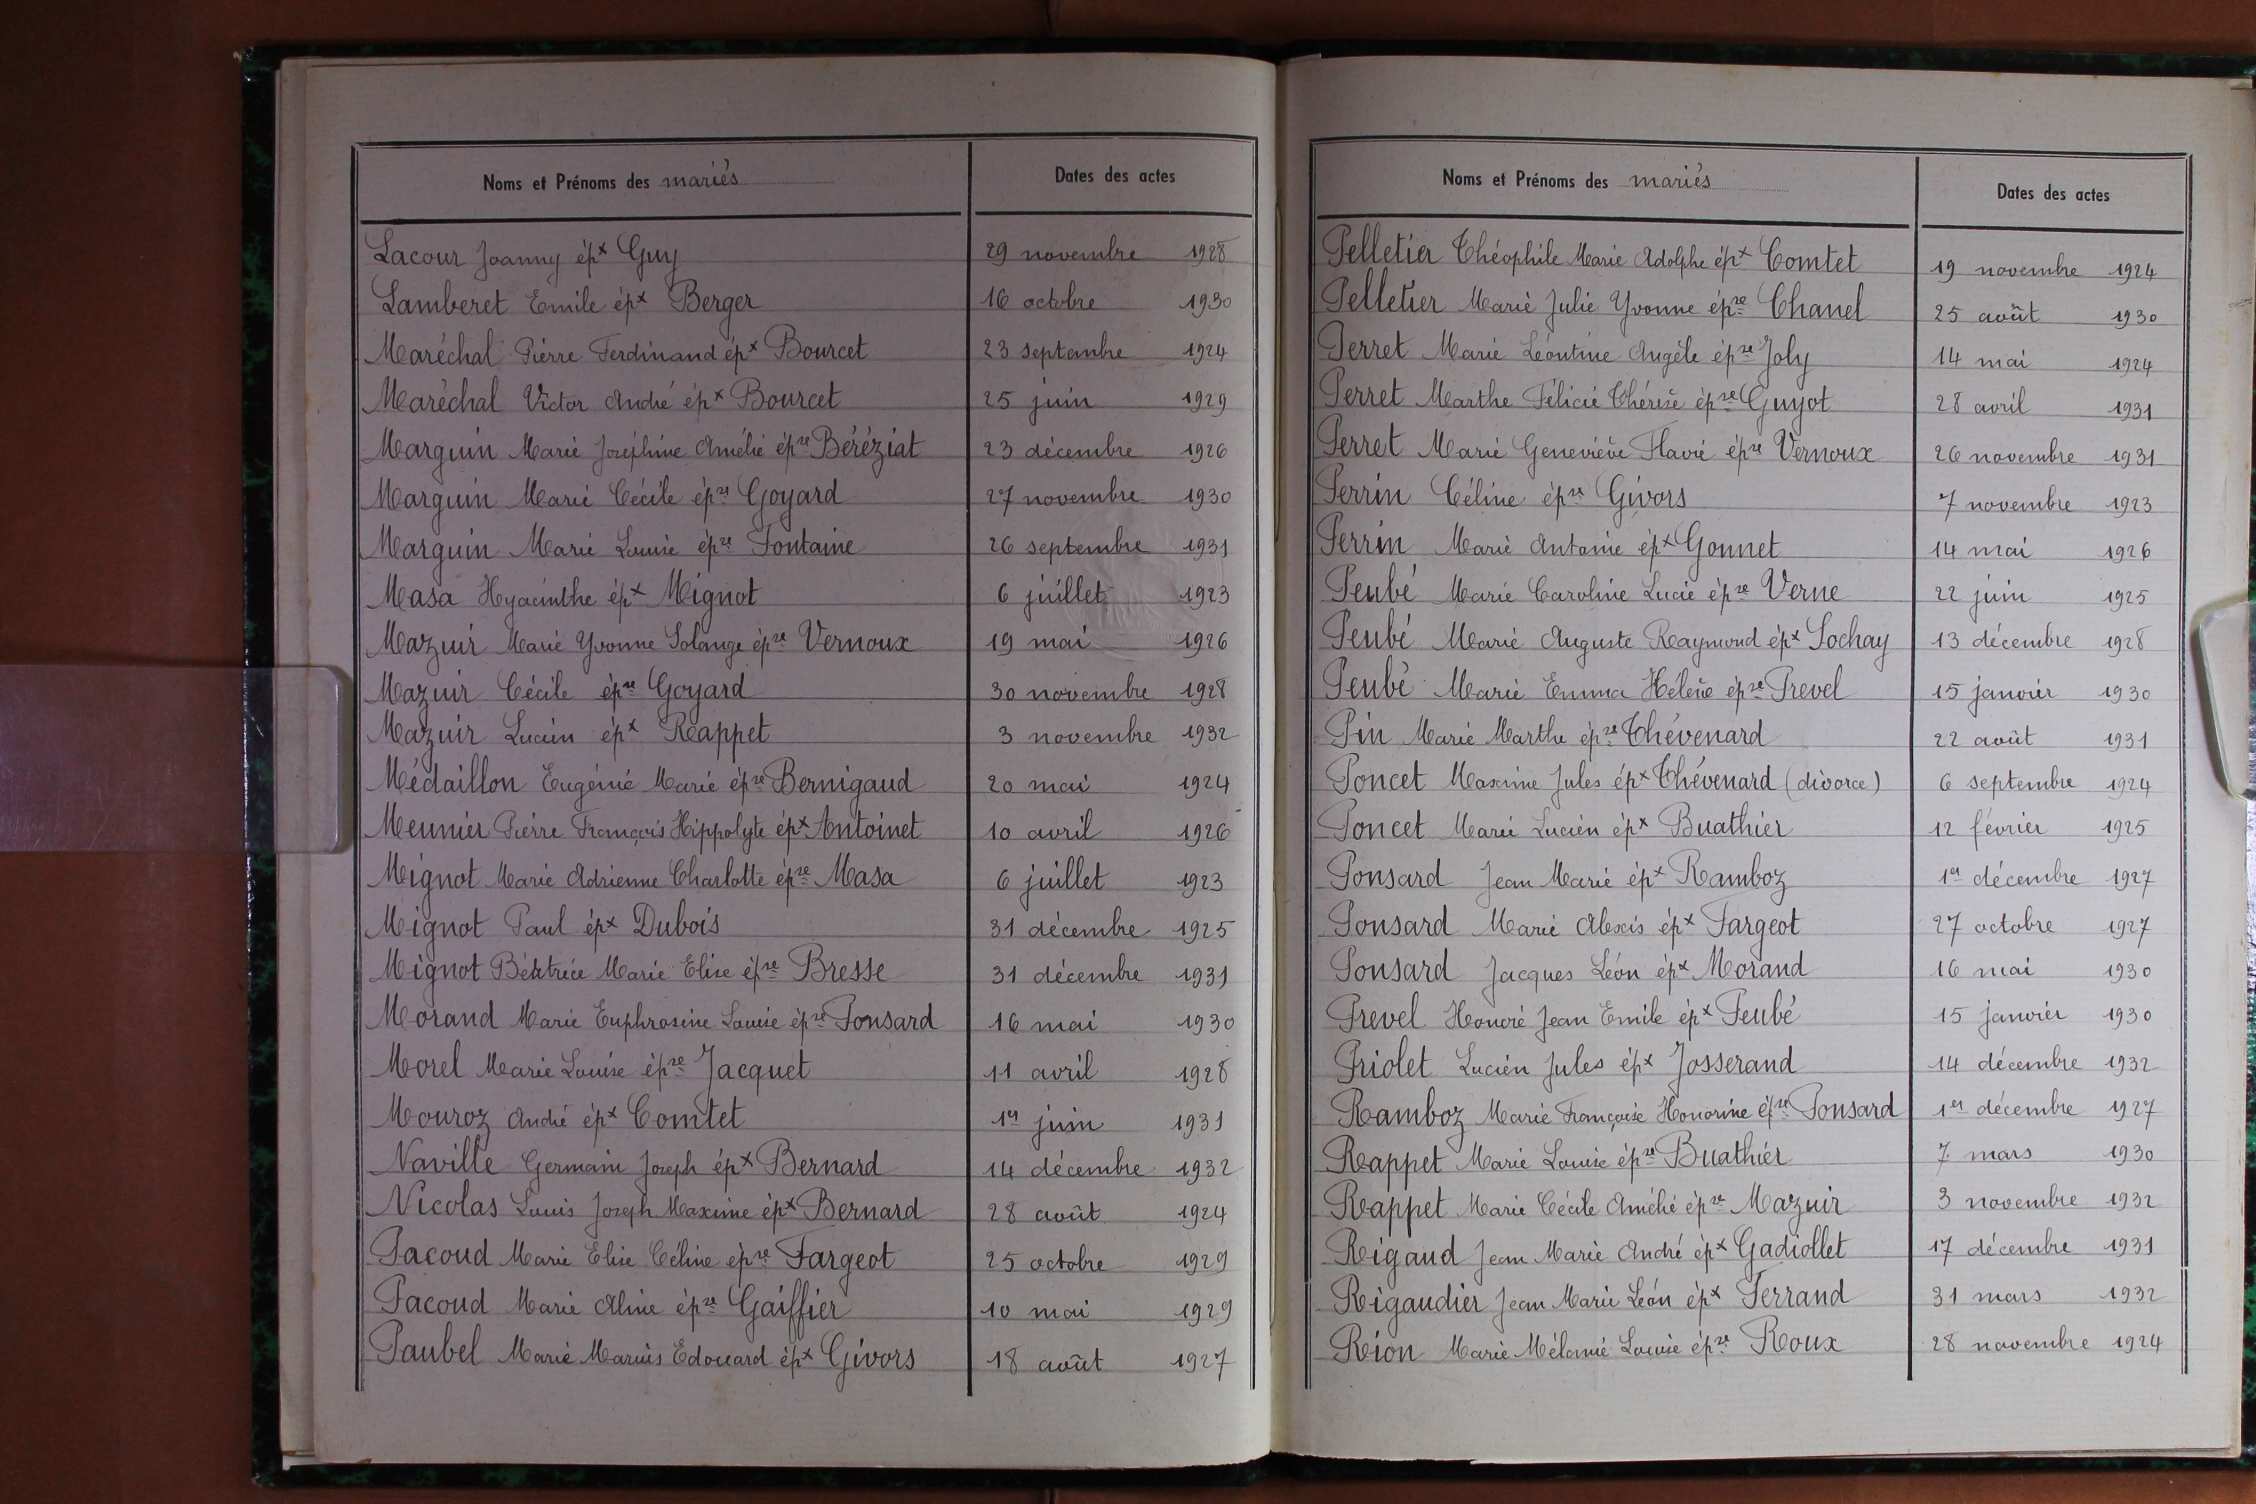 Noms et Prénoms des mariés Dates des actes
Lacour Joanny épx Guy 29 novembre 1928
Lamberet Emile épx Berger 16 octobre 1930
Maréchal Pierre Ferdinand épx Bourcet 23 septembre 1924
Maréchal Victor André épx Bourcet 25 juin 1929
Marguin Marie Joséphine Amélie épse Béréziat 23 décembre 1926
Marguin Marie Cécile épse Goyard 27 novembre 1930
Marguin Marie Louise épse Fontaine 26 septembre 1931
Masa Hyacinthe épx Mignot 6 juillet 1923
Mazuir Marie Yvonne Solange épse Vernoux 19 mai 1926
Mazuir Cécile épse Goyard 30 novembre 1928
Mazuir Lucien épx Rappet 3 novembre 1932
Médaillon Eugénie Marie épse Bernigaud 20 mai 1924
Meunier Pierre François Hippolyte épx Antoinet 10 avril 1926
Mignot Marie Adrienne Charlotte épse Masa 6 juillet 1923
Mignot Paul épx Dubois 31 décembre 1925
Mignot Béatrice Marie Elise épse Bresse 31 décembre 1931
Morand Marie Euphrosine Louise épse Ponsard 16 mai 1930
Morel Marie Louise épse Jacquet 11 avril 1928
Mouroz André épx Comtet 1er juin 1931
Naville Germain Joseph épx Bernard 14 décembre 1932
Nicolas Louis Joseph Maxime épx Bernard 28 août 1924
Pacoud Marie Elise Céline épse Fargeot 25 octobre 1929
Pacoud Marie Aline épse Gaiffier 10 mai 1929
Paubel Marie Marius Edouard épx Givors 18 août 1927
Noms et Prénoms des mariés Dates des actes
Pelletier Théophile Marie Adolphe épx Comtet 19 novembre 1924
Pelletier Marie Julie Yvonne épse Chanel 25 août 1930
Perret Marie Léontine Angèle épse Joly 14 mai 1924
Perret Marthe Félicie Thérèse épse Guyot 28 avril 1931
Perret Marie Geneviève Flavie épse Vernoux 26 novembre 1931
Perrin Céline épse Givors 7 novembre 1923
Perrin Marie Antoine épx Gonnet 14 mai 1926
Peubé Marie Caroline Lucie épse Verne 22 juin 1925
Peubé Marie Auguste Raymond épx Sochay 13 décembre 1928
Peubé Marie Emma Hélène épse Prevel 15 janvier 1930
Pin Marie Marthe épse Thévenard 22 août 1931
Poncet Maxime Jules épx Thévenard (divorce) 6 septembre 1924
Poncet Marie Lucien épx Buathier 12 février 1925
Ponsard Jean Marie épx Ramboz 1er décembre 1927
Ponsard Marie Alexis épx Fargeot 27 octobre 1927
Ponsard Jacques Léon épx Morand 16 mai 1930
Prevel Honoré Jean Emile épx Peubé 15 janvier 1930
Priolet Lucien Jules épx Josserand 14 décembre 1932
Ramboz Marie Françoise Honorine épse Ponsard 1er décembre 1927
Rappet Marie Louise épse Buathier 7 mars 1930
Rappet Marie Cécile Amélie épse Mazuir 3 novembre 1932
Rigaud Jean Marie André épx Gadiollet 17 décembre 1931
Rigaudier Jean Marie Léon épx Ferrand 31 mars 1932
Rion Marie Mélanie Louise épse Roux 28 novembre 1924